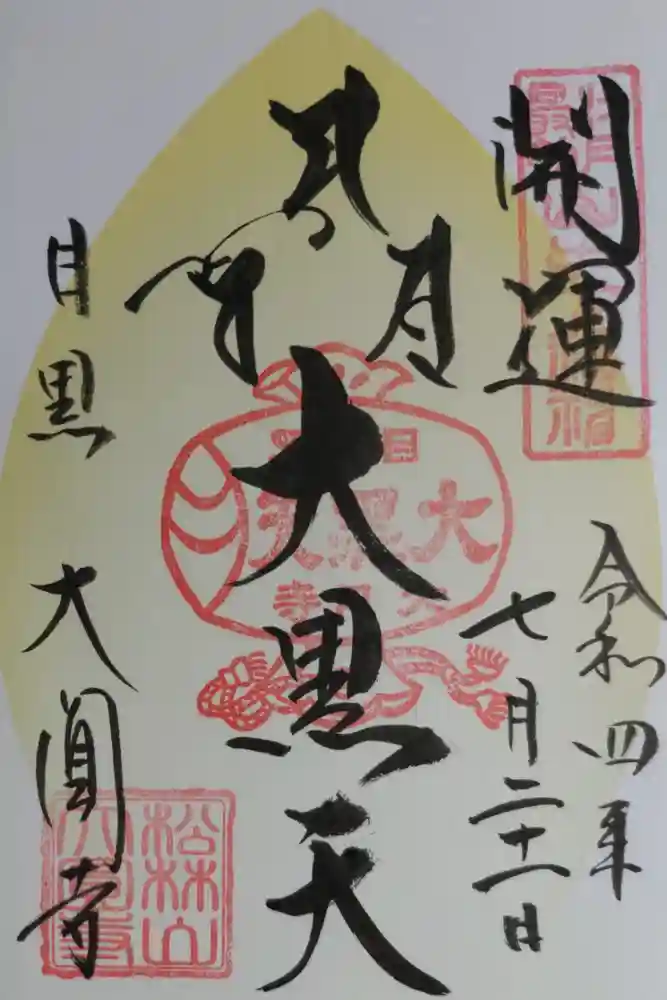 開運
令和四年
七月二十一日
大黒天
目黒 大圓寺
大黒天
松林山
大圓寺